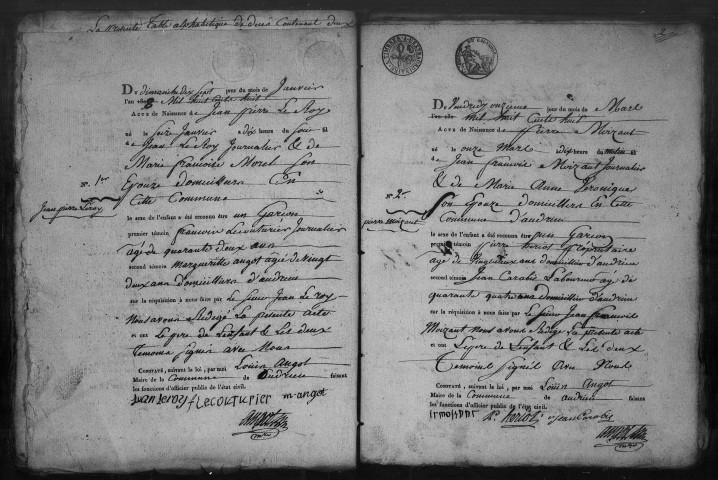 Table alphabétique de deux Contenant deux
Du dimanche dix sept jour du mois de Janvier
l'an Mil huit Cents huit
Acte de Naissance de Jean pierre Le Roy
né le seize janvier a dix heure du soir fil
de Jean Le Roy Journalier & de
Marie francoise Morel Son
Epouze domiciliers En
Cette Commune
N.° 1er
Jean pierre Leroy
le sexe de l'enfant a été reconnu être un Garcon
premier témoin francois Lecouturier Journalier
agé de quarante deux ans
second témoin Margueritte angot agié de vingt
deux ans domiciliers d'andrieu
sur la réquisition à nous faite par Le Sieur Jean Le roy
Nous avons Redigé La présente acte
et ont Le pere de Lenfant & Les deux
Temoins Signer avec Nous
Constaté, suivant la loi, par moi Louis Angot
Maire de la Commune de andrieu faisant
les fonctions d'officier public de l'état civil.
Jean Leroy f LECOUTURIER m angot
2
Du Vendredy onzieme jour du mois de Mars
l'an Mil huit Cents huit
Acte de Naissance de Pierre Moizant
né le onze Mars a dix heure du matin fil
de Jean francois Moizant Journalier
& de Marie Anne Veronique
Son Epouze domiciliers En Cette
Commune d'andrieu
N.° 2e
pierre moizant
le sexe de l'enfant a été reconnu être un Garcon
premier témoin pierre propriétaire
agé de vingt deux ans domicillier d'andrieu
second témoin Jean Carabis Laboureur agé de
quarante quatre ans domicillier d'andrieu
sur la réquisition à nous faite par Le Sieur Jean francois
Moizant Nous avons Redigé La présente acte
et ont Le pere de Lenfant & Les deux
Temoins Signer Avec Nous
Constaté, suivant la loi, par moi Louis Angot
Maire de la Commune de andrieu faisant
les fonctions d'officier public de l'état civil.
Jean Carabis